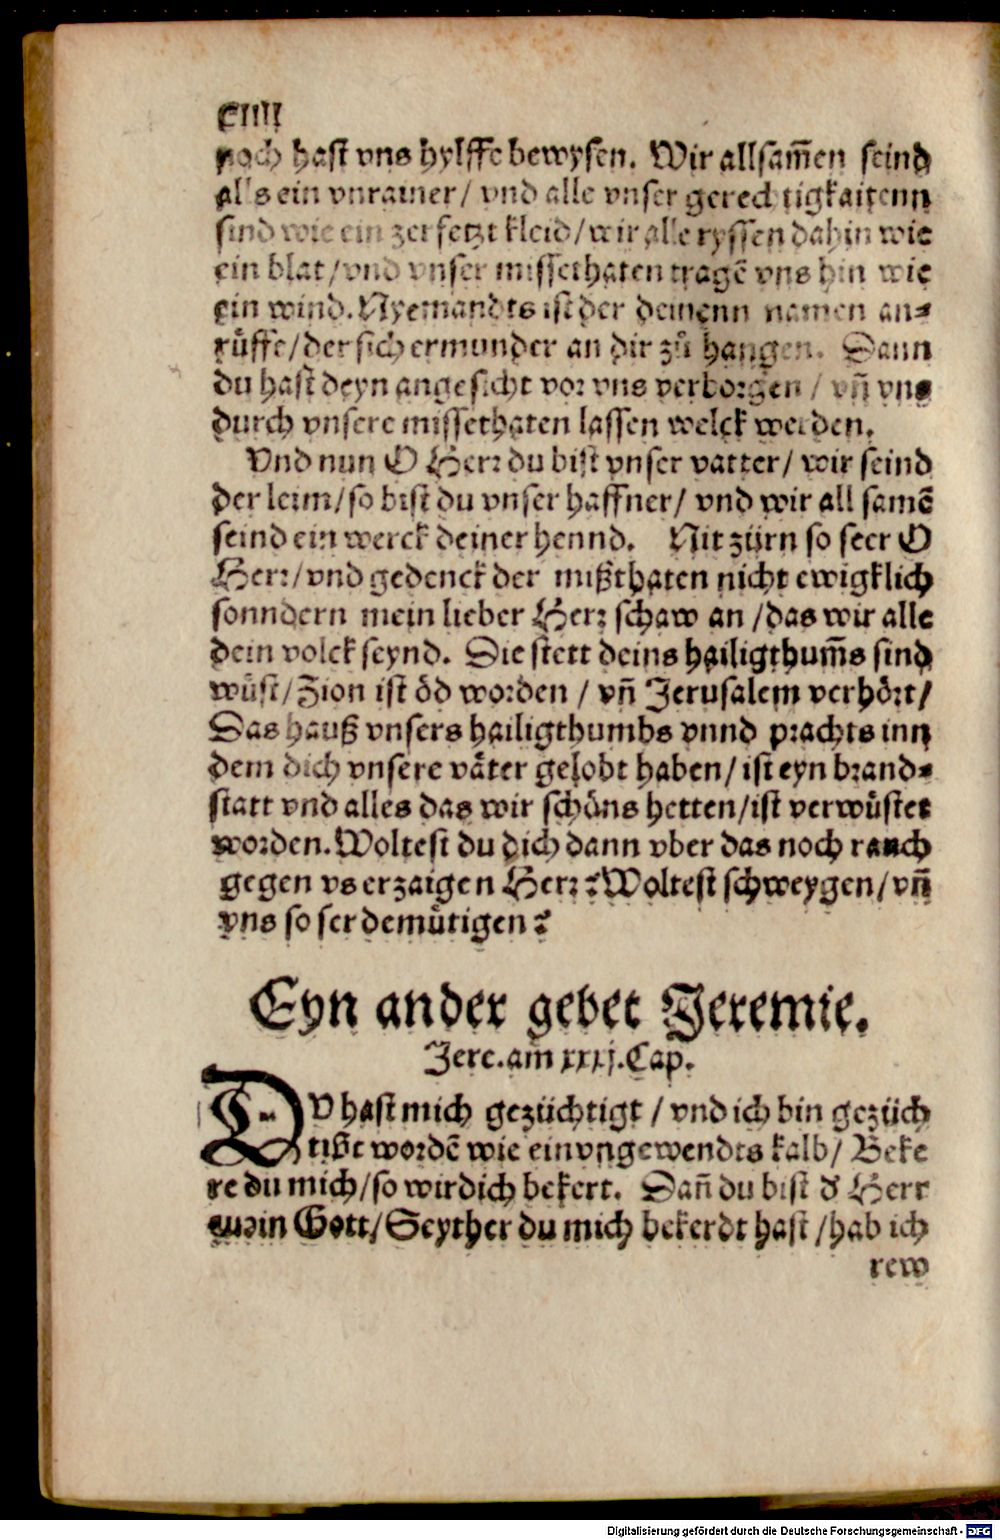 noch hast vns hylffe bewysen. Wir allsam̄en seind
als ein vnrainer/ vnd alle vnser gerechtigkaitenn
sind wie ein zerfetzt kleid/wir alle ryssen dahin wie
ein blat/vnd vnser missethaten tragē vns hin wie
ein wind. Nyemandts ist der deinenn namen an⸗
rüffe/der sich ermunder an dir zů hangen. Dann
du hast deyn angesicht vor vns verborgen / vn̄ vns
durch vnsere missethaten lassen welck werden.
Vnd nun O Herr du bist vnser vatter/ wir seind
der leim/so bist du vnser haffner/ vnd wir all samē
seind ein werck deiner hennd. Nit zürn so seer O
Herr/vnd gedenck der mißthaten nicht ewigklich
sonndern mein lieber Herr schaw an /das wir alle
dein volck seynd. Die stett deins hailigthum̄s sind
wüst/Zion ist öd worden / vn̄ Jerusalem verhört/
Das hauß vnsers hailigthumbs vnnd prachts inn
dem dich vnsere väter gelobt haben/ ist eyn brand⸗
statt vnd alles das wir schöns hetten/ist verwüstet
worden. Woltest du dich dann vber das noch rauch
gegen vs erzaigen Herr? Woltest schweygen/ vn̄
vns so ser demütigen?
Eyn ander gebet Jeremie.
Jere. am xxxj. Cap.
DV hast mich gezüchtigt / vnd ich bin gezüch
tigt wordē wie ein vngewendts kalb/ Beke
re du mich/so wirdich bekert. Dan̄ du bist d̕ Herr
mein Gott/ Seyther du mich bekerdt hast /hab ich
rew
Digitalisierung gefördert durch die Deutsche Forschungsgemeinschaft - DFG